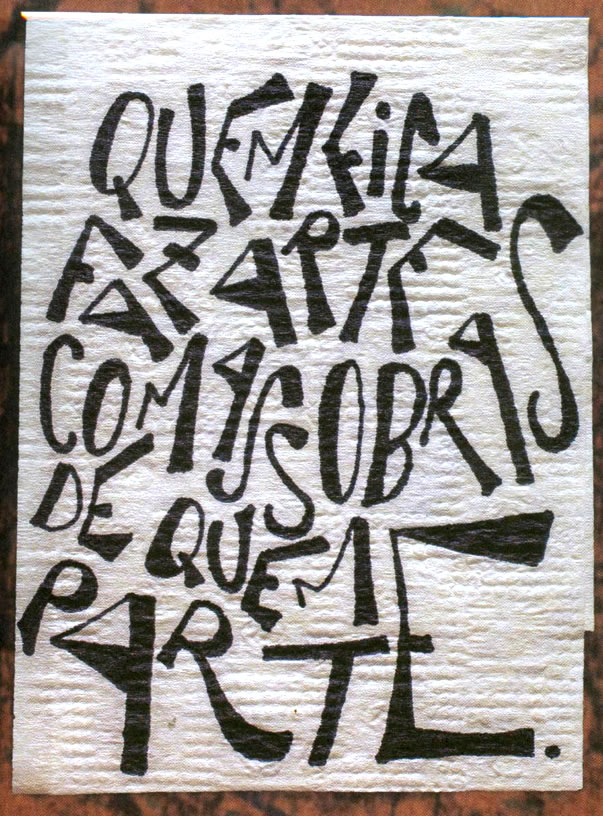 QUEM FiCA
FAZ ARTE
COM AS SOBRAS
DE QUEM
PARTE.